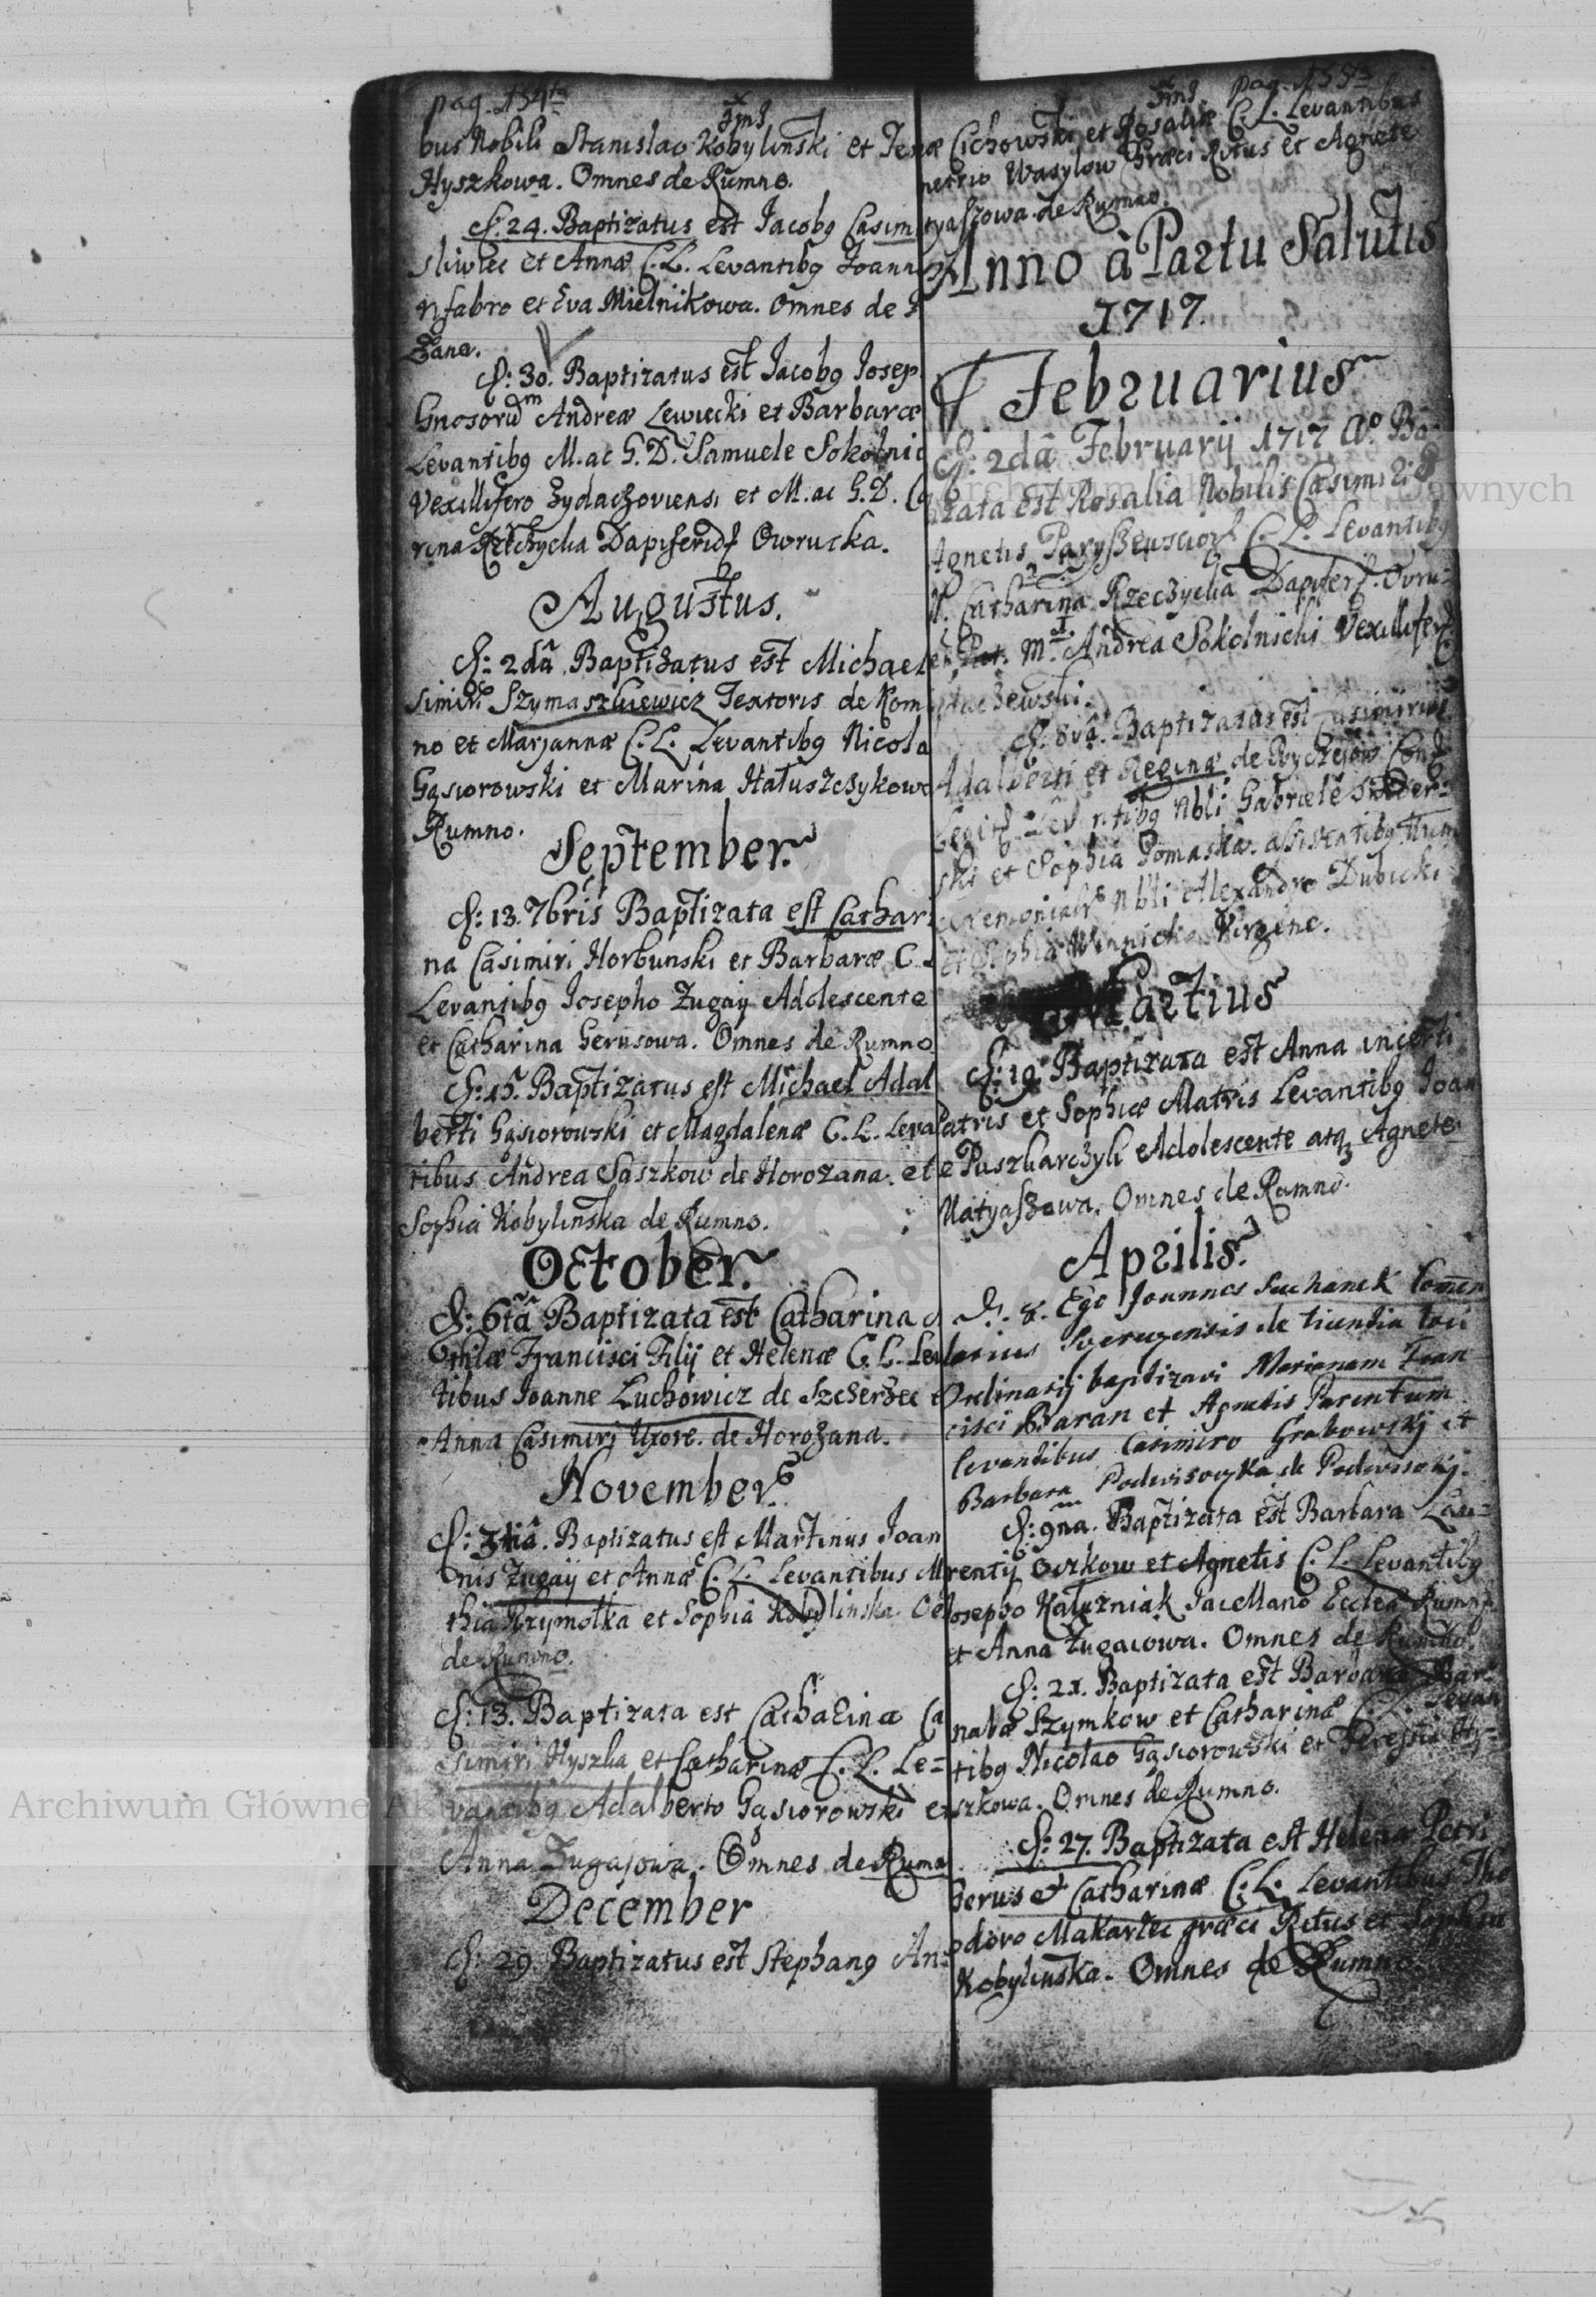 pag. 154ta
bus Nobili Stanislao Kobylinski et Te
Hyszkowa. Omnes de Rumno.
d: 24. Baptizatus est Jacobg Casim
sliwiec et Annæ C. L. Levantibg Joann
nfabro et Eva Mielnikowa. Omnes de
Zana.
d: 30. Baptizatus est Jacobg Josep
Gnosorum Andreæ Lewiecki et Barbaræ
Levantibg M. ac G. D. Samuele Sokolnic
Vexillifero Zydaczoviensi et M. ac G. D. Ca
rina Rzeczycka Dapiferid Owrucka.
Augustus.
d: 2da Baptizatus est Michael
simiri Szymaszkiewicz Textoris de Kom
no et Marjannæ C. L. Levantibg Nicola
Gąsiorowski et Marina Hałuszczykowa
Rumno.
September.
d: 13. 7bris Baptizata est Cathar
na Casimiri Horbunski et Barbaræ C.
Levantibg Josepho Zugaij Adolescente
et Catharina Gerusowa. Omnes de Rumno
d: 15. Baptizatus est Michael Adal
berti Gąsiorowski et Magdalenæ C. L. Leva
tibus Andrea Saszkow de Horozana. et
Sophia Kobylinska de Rumno.
October.
d: 6ta Baptizata est Catharina
Francisci Filij et Helenæ C. L. Lev
tibus Joanne Luchowicz de Szczerzec e
Anna Casimirj Uxore. de Horozana.
November.
d: 3tia. Baptizatus est Martinus Joan
nis Zugaij et Annæ C. L. Levantibus M
thia Krzymotka et Sophia Kobylinska. O
de Rumno.
d: 13. Baptizata est Catharina Ca
simiri Hyszka et Catharinæ C. L. Le=
vantibg Adalberto Gąsiorowski e
Anna Zugajowa. Omnes de Rumn
December
d: 29. Baptizatus est Stephang An=
pag. 155ta
Cichowski et Rosaliæ C. L. Levantibus
metrio Wasylow Græci Ritus et Agnete
tyaszowa de Rumno.
Anno à Partu Salutis
1717.
Februarius
d: 2da Februarij 1717 Ao. Ba=
izata est Rosalia Nobilis Casimiri
Agnetis C. L. Levantibg
Catharina Rzeczycka Dapifer. Ovru=
M. Andrea Sokolnicki Vexillifer
daczewski.
d: 8va. Baptizatus est Casimirus
Adalberti et Reginæ de Ryczejow Conj
Legit. Levantibg Nbli Gabriele
ski et Sophia Pomaska. asistatibg
ceremonialr Nbli Alexandro Dubicki
et Sophia Winnicka Virgine.
Martius
d: 19. Baptizata est Anna incerti
Patris et Sophiæ Matris Levantibg Joan
e Puszkarczyk Adolescente atq Agnete
Matyaszowa. Omnes de Rumno.
Aprilis.
d. 8. Ego Joannes Suchanek Comen
darius de licentia loci
Ordinarij baptizavi Mariannam Fran
cisci Baran et Agnetis Parentum
levantibus Casimiro Grabowskj et
Barbara Podwisoczka de Podwisokij.
d: 9na. Baptizata est Barbara Lau=
rentij Oczkow et Agnetis C. L. Levantibg
Josepho Kałuzniak Sacellano Eccleæ Rumn
et Anna Zugaiowa. Omnes de Rumno.
d: 21. Baptizata est Barbara Bar
nabæ Szymkow et Catharinæ C. L. Levan
tibg Nicolao Gąsiorowski et Teressia Hy=
szkowa. Omnes de Rumno.
d: 27. Baptizata est Helena Petri
Gerus et Catharinæ C. L. Levantibus The
odoro Makartec græci Ritus et Sophia
Kobylinska. Omnes de Rumno.